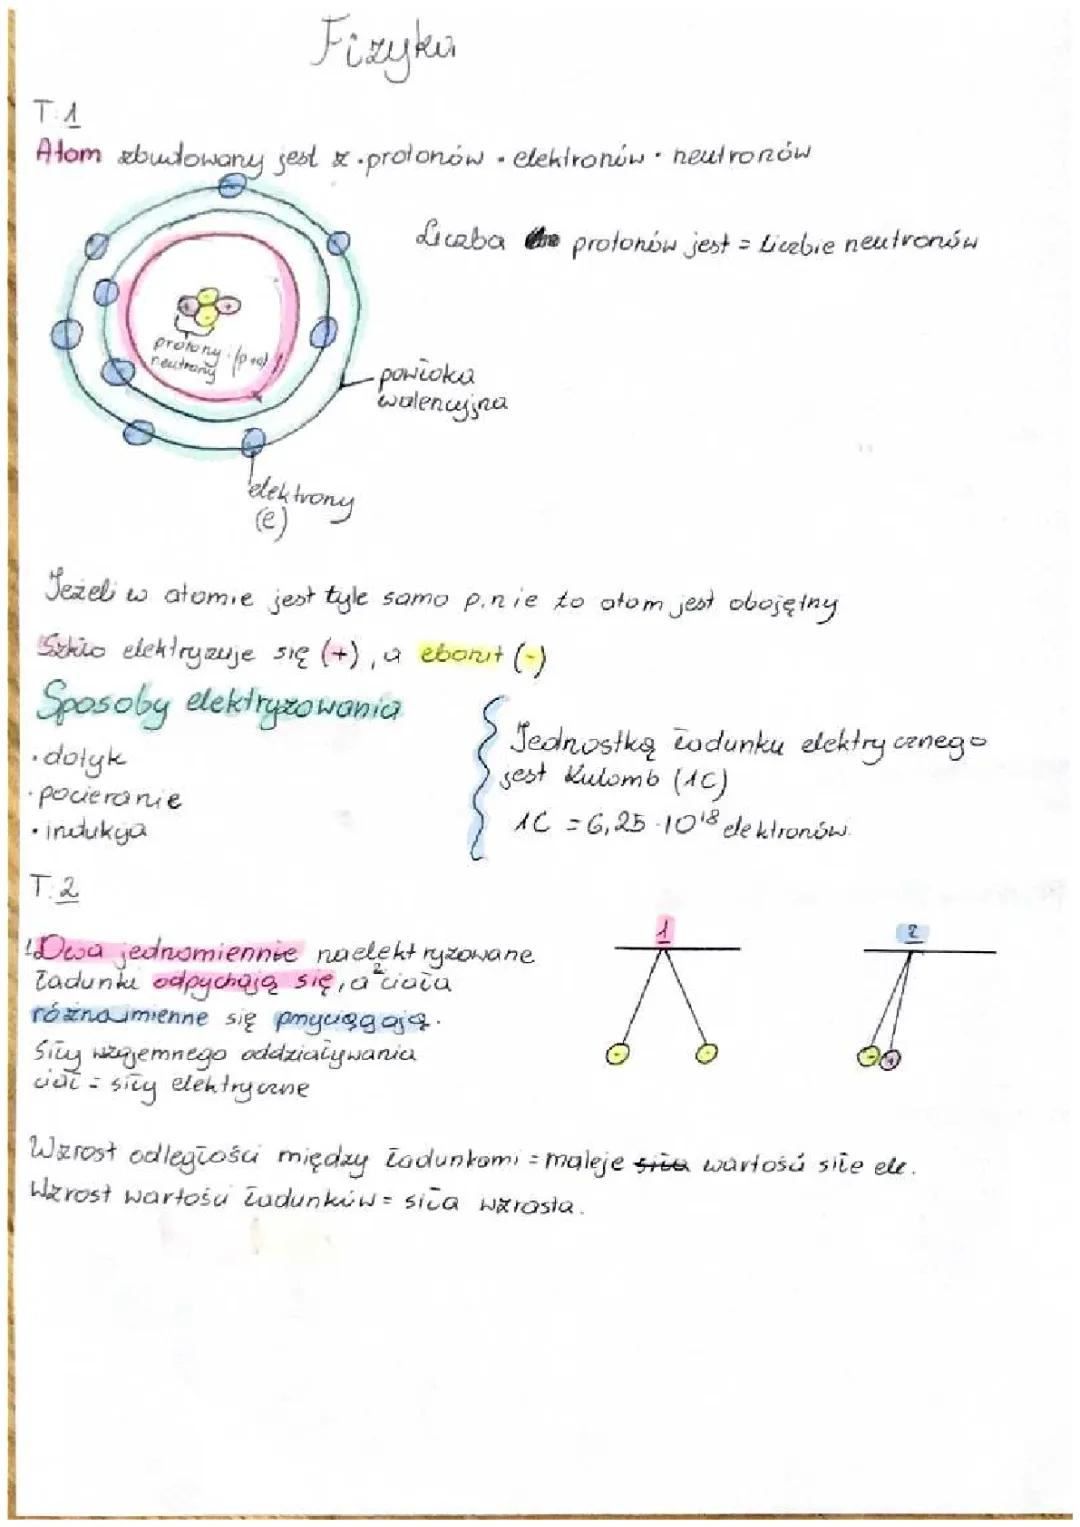 Fizyka
T.1
Atom zbudowany jest z • protonów • elektronów • neutronów
Liczba protonów jest = liczbie neutronów
protony
neutrony
powłoka
walencyjna
elektrony
(e)
Jeżeli w atomie jest tyle samo p.n i e to atom jest obojętny
Szkło elektryzuje się (+), a ebonit (-)
Sposoby elektryzowania
• dotyk
• pocieranie
• indukcja
Jednostką ładunku elektrycznego
jest Kulomb (1C)
1C = 6,25 · 10¹⁸ elektronów.
T.2
1. Dwa jednomiennie naelektryzowane
ładunki odpychają się, a ² ciała
różnoimienne się przyciągają.
Siły wzajemnego oddziaływania
ciał = siły elektryczne
1
2
Wzrost odległości między ładunkami = maleje siła wartość siłe ele.
Wzrost wartości ładunków = siła wzrasta.